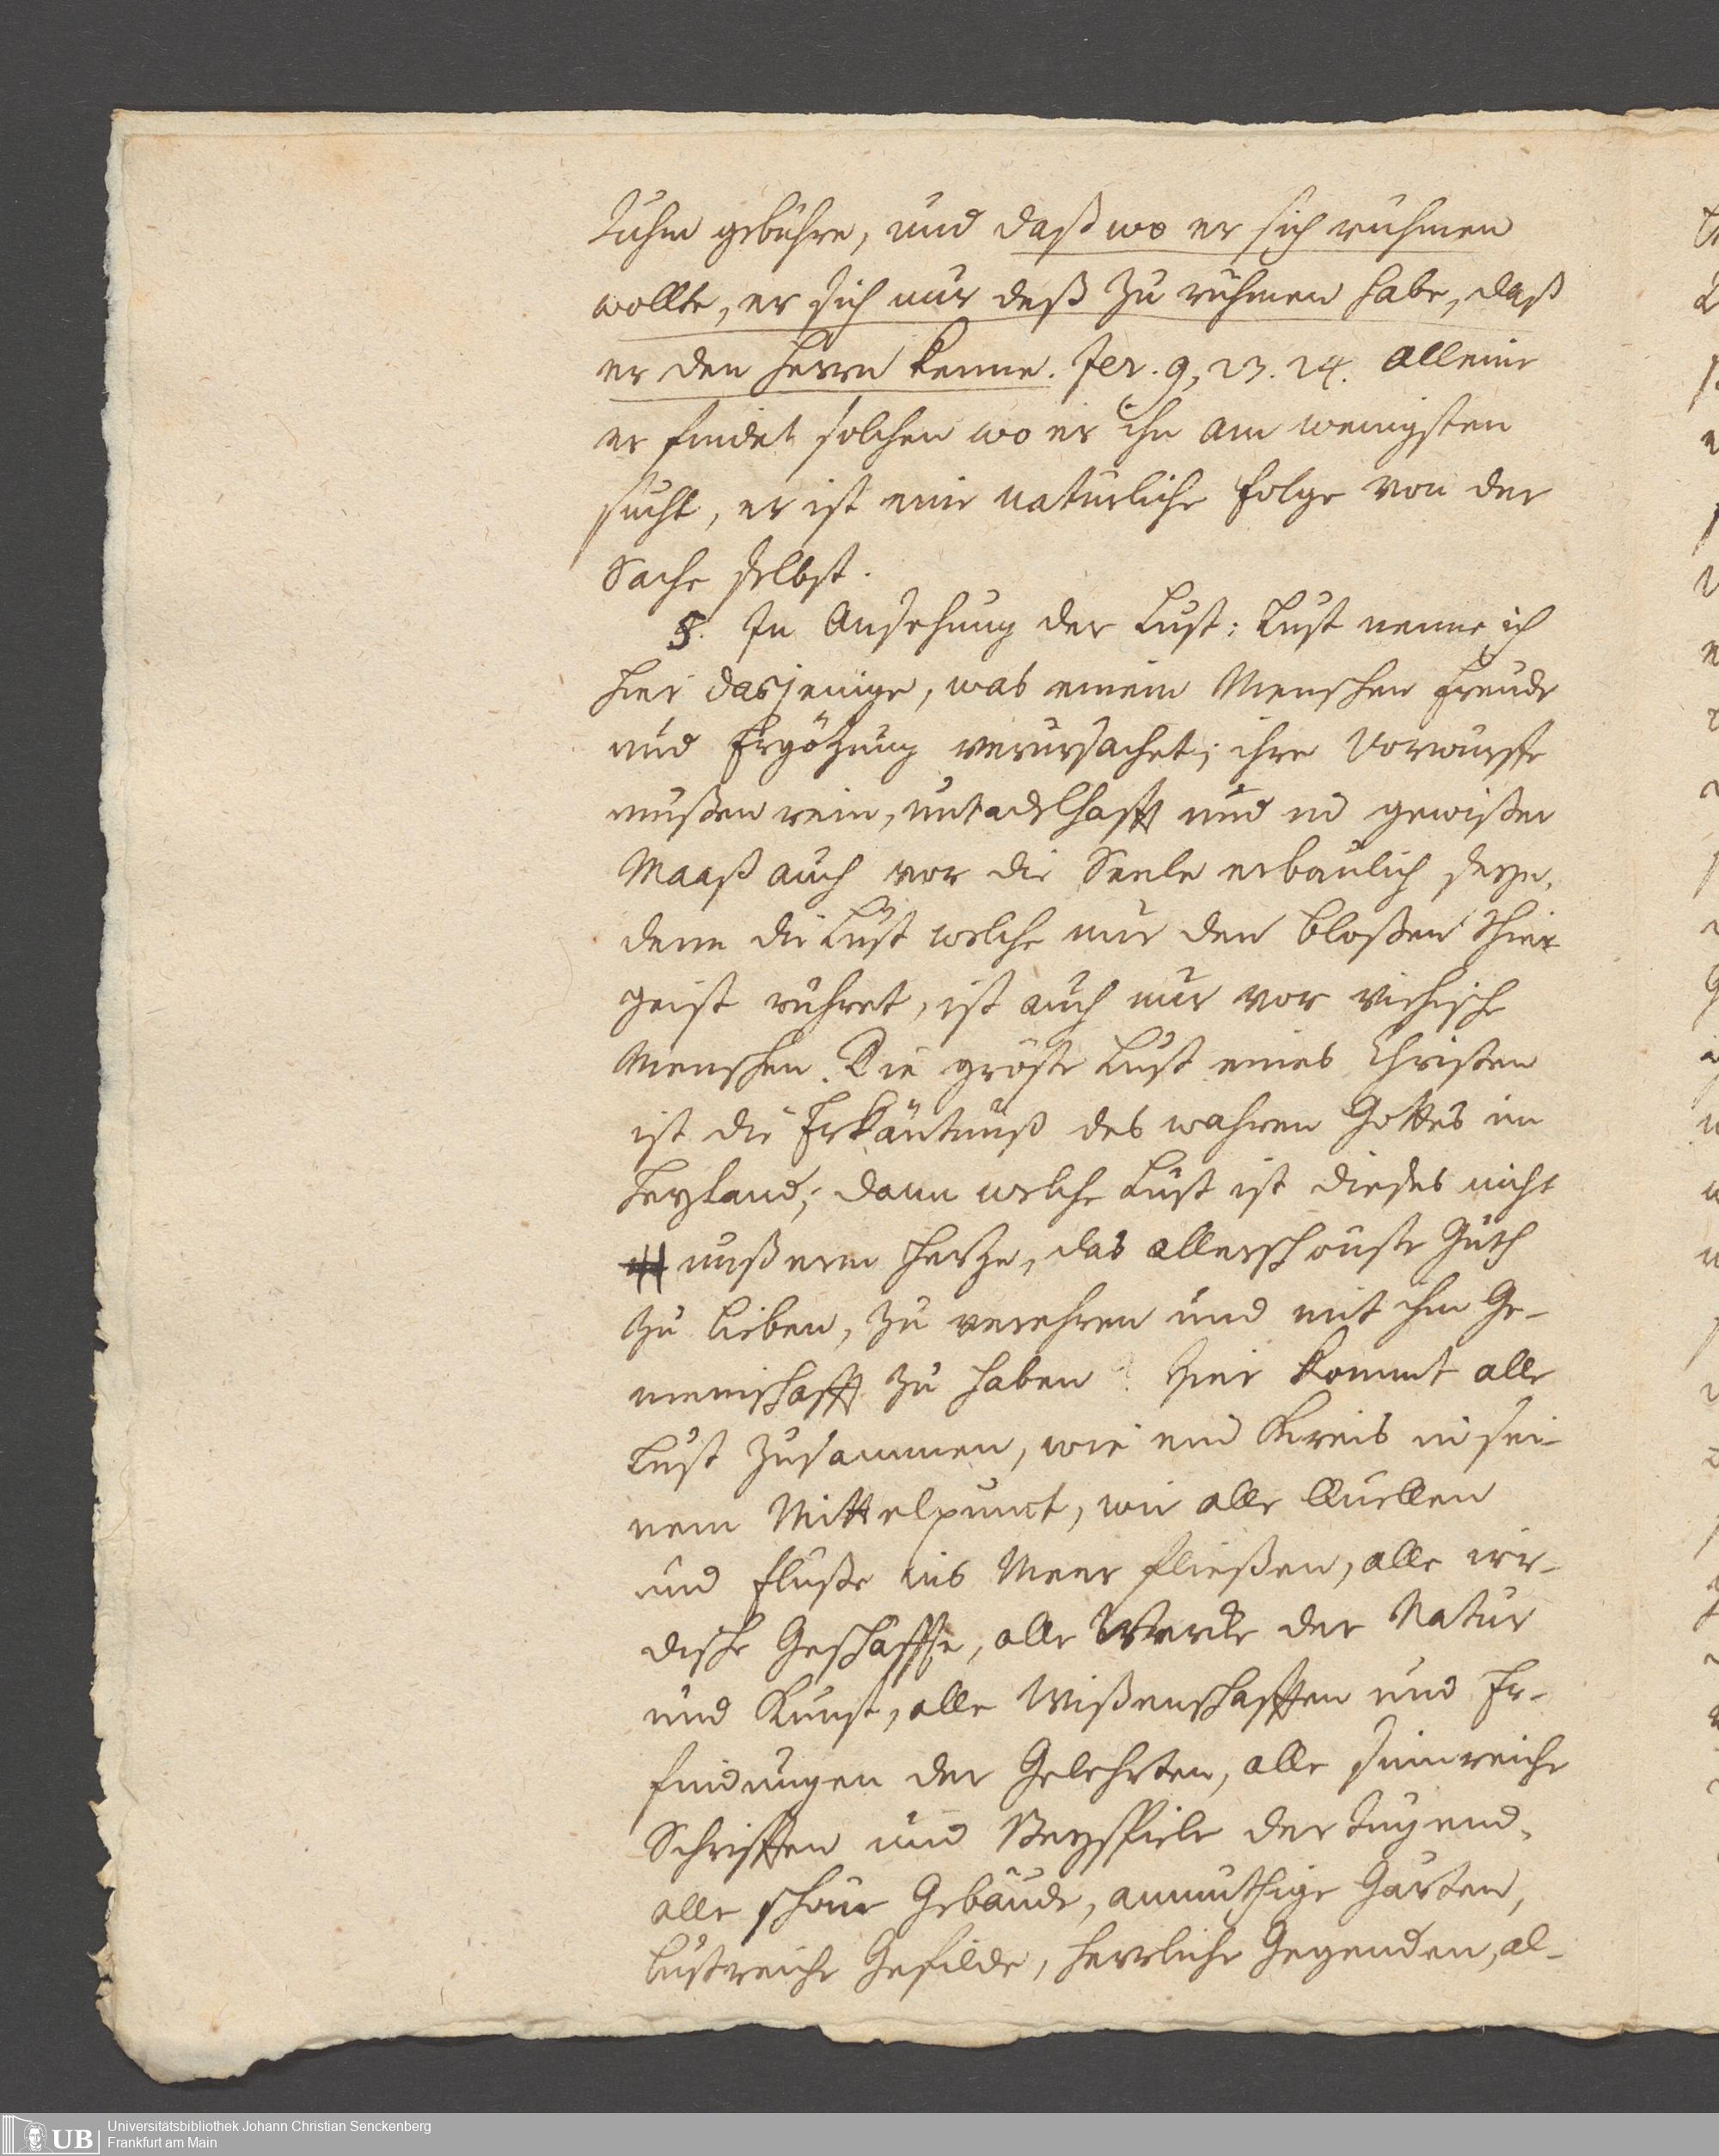 Ruhm gebühre, und daß wo er sich rühmen
wollte, er sich nur deß zu rühmen habe, daß
er den Herrn kenne. Jer. 9, 23. 24. Alleine
er findet solchen wo er ihn am wenigsten
sucht, er ist eine natürliche Folge von der
Sache selbst.
8. In Ansehung der Lust: Lust nenne ich
hier dasjenige, was einem Menschen Freude
und Ergötzung verursachet; ihre Vorwürffe
müßen rein, untadelhafft und in gewißer
Maaß auch vor die Seele erbaulich seyn,
denn die Lust welche nur den bloßen Thier
geist rühret, ist auch nur vor viehische
Menschen. Die gröste Lust eines Christen
ist die Erkäntnuß des wahren Gottes im
Heyland; dann welche Lust ist dieses nicht
unßerm Hertze, das allerschönste Guth
zu lieben, zu verehren und mit ihm Ge-
meinschafft zu haben? Hier kommt alle
Lust zusammen, wie ein Kreis in sei-
nem Mittelpunct, wie alle Quellen
und Flüße ins Meer fließen, alle irr-
dische Geschäffte, alle Wercke der Natur
und Kunst, alle Wißenschafften und Er-
findungen der Gelehrten, alle sinnreiche
Schrifften und Beyspiele der Tugend,
alle schöne Gebäude, anmuthige Gärten,
lustreiche Gefilde, herrliche Gegenden, al-
UB Universitätsbibliothek Johann Christian Senckenberg
Frankfurt am Main